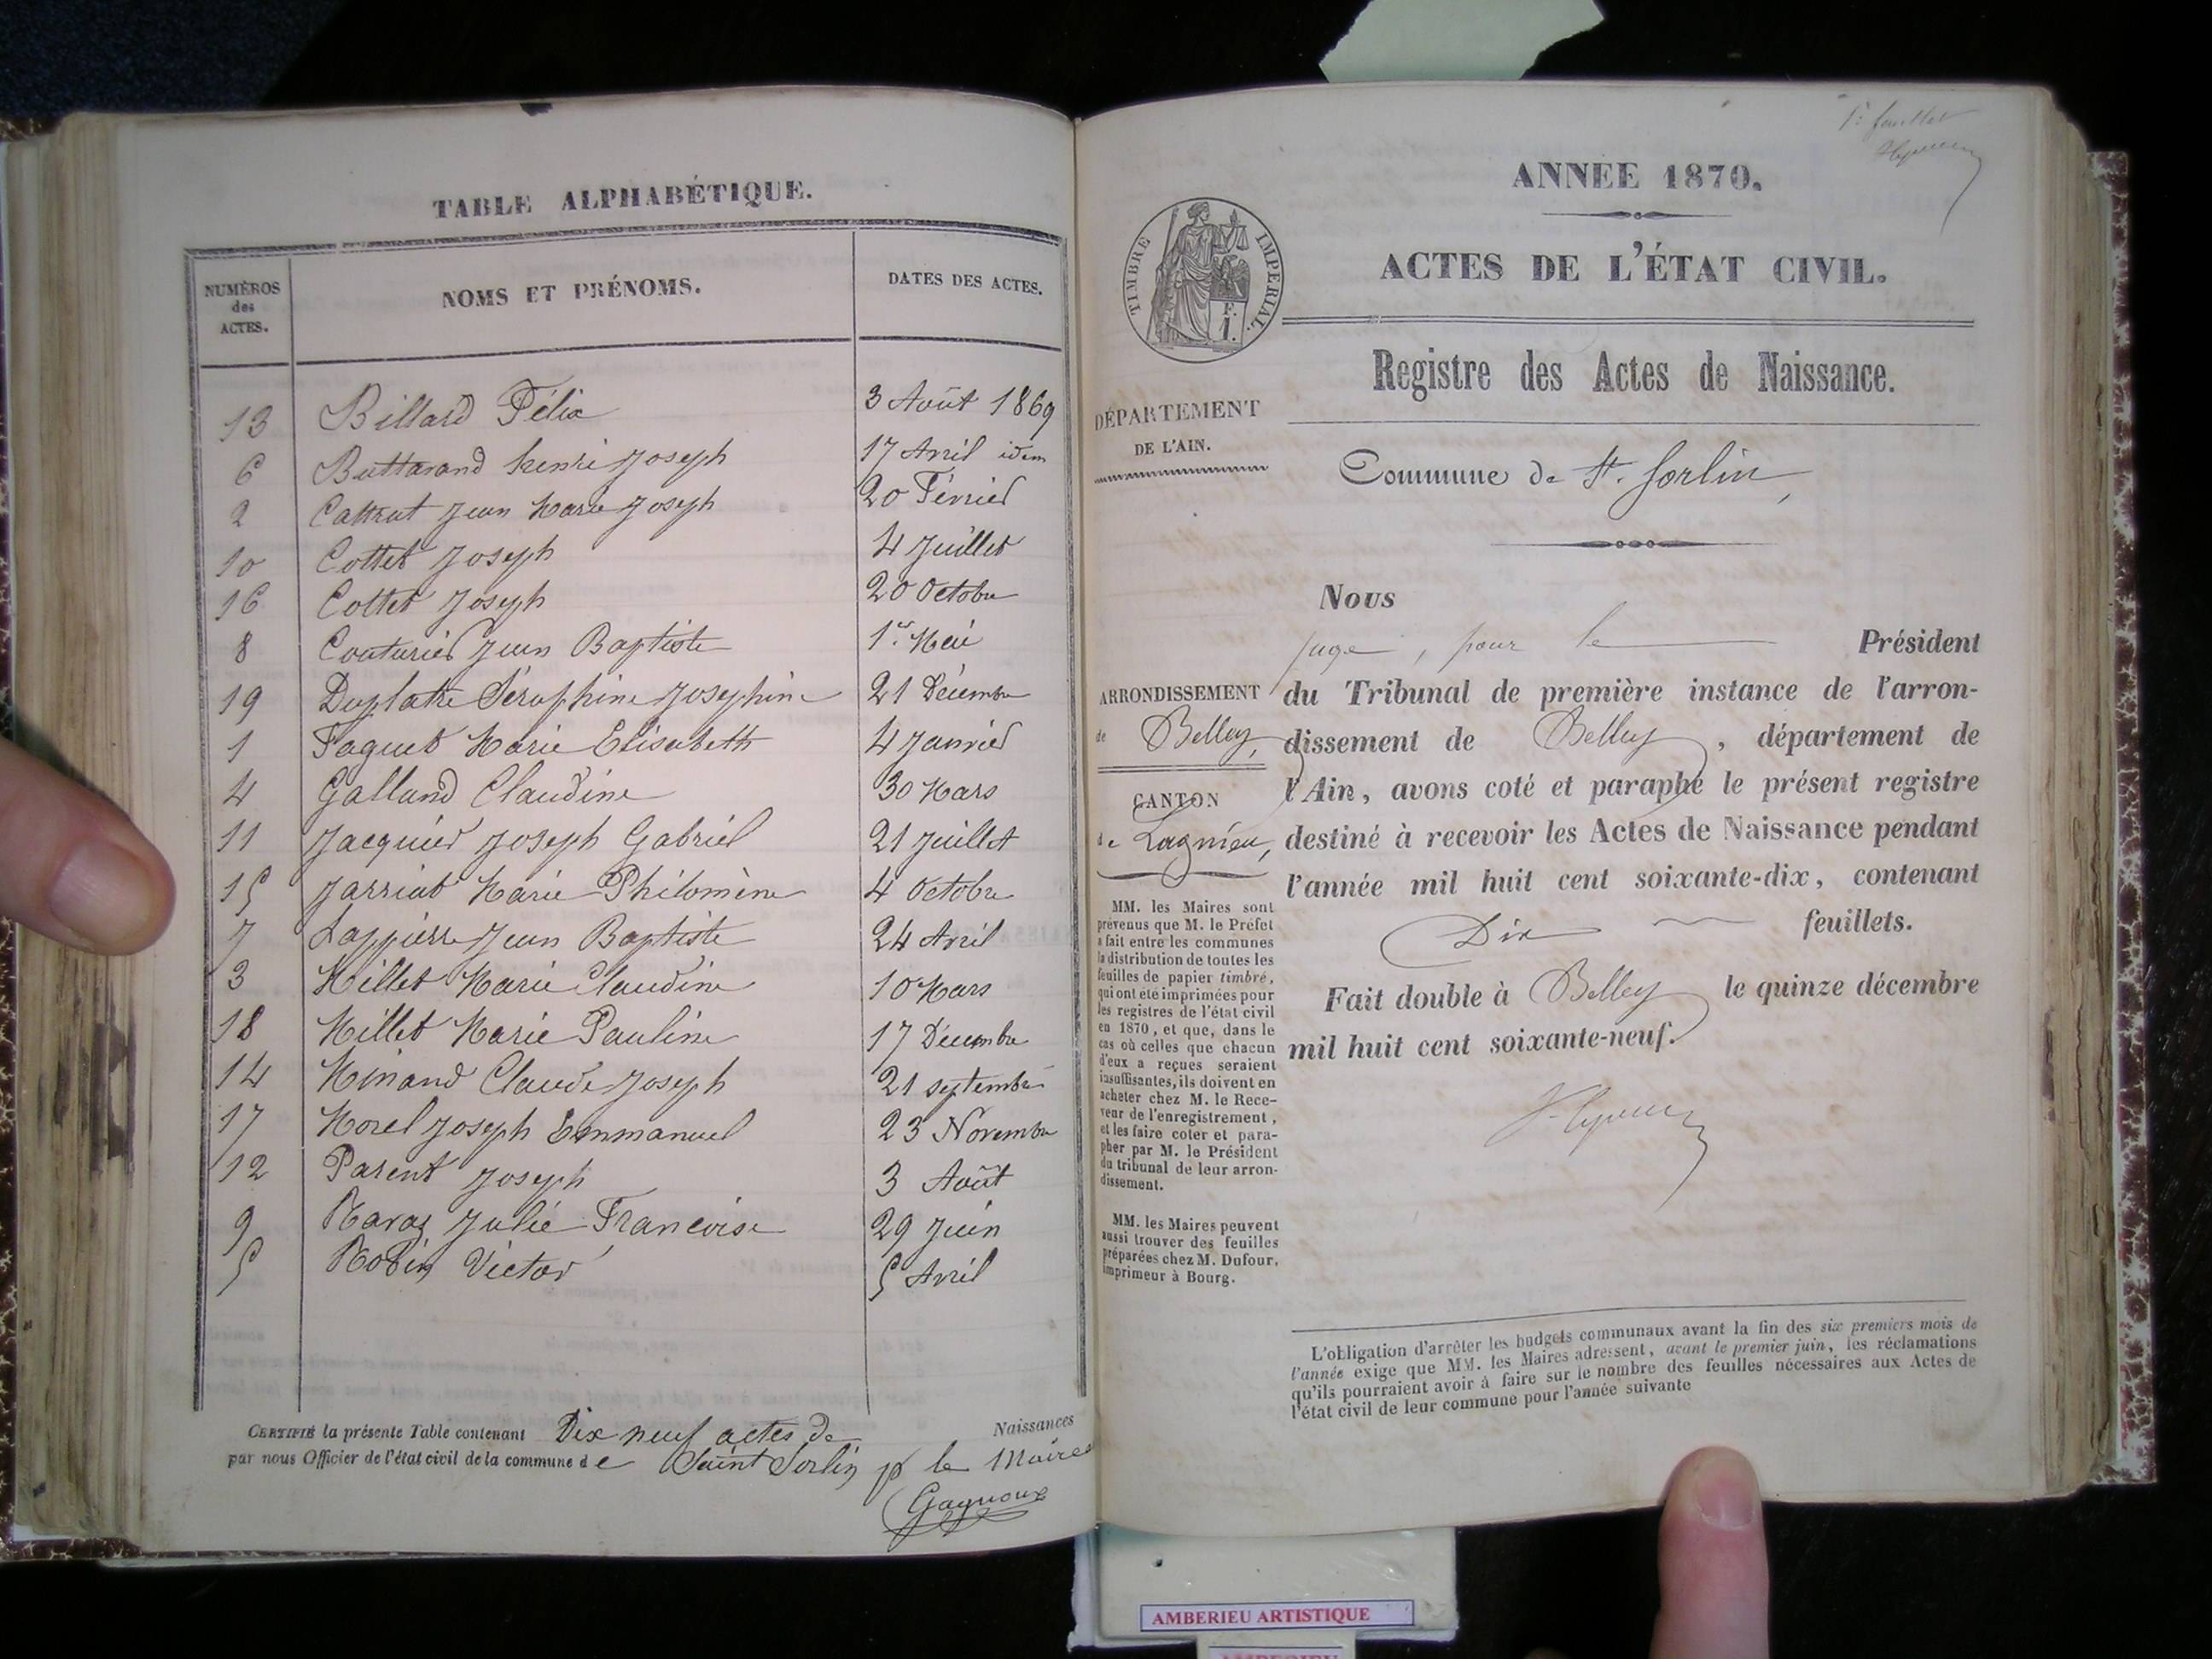 TABLE ALPHABÉTIQUE.
NUMÉROS des ACTES. NOMS ET PRÉNOMS. DATES DES ACTES.
13 Billard Félix 3 Août 1869
6 Buttarand henri Joseph 17 Avril idem
2 Jean Marie Joseph 20 Février
10 Cottet Joseph 4 Juillet
16 Cottet Joseph 20 Octobre
8 Couturier Jean Baptiste 1er Mai
19 Duplatre Séraphine Josephine 21 Décembre
1 Faguet Marie Elisabeth 4 Janvier
4 Galland Claudine 30 Mars
11 Jacquier Joseph Gabriel 21 Juillet
15 Jarriat Marie Philomène 4 Octobre
7 Lappierre Jean Baptiste 24 Avril
3 Millet Marie Claudine 10 Mars
18 Millet Marie Pauline 17 Décembre
14 Minand Claude Joseph 21 septembre
17 Morel Joseph Emmanuel 23 Novembre
12 Parent Joseph 3 Août
9 Ravaz Julie Francoise 29 Juin
5 Robin Victor 5 Avril
CERTIFIÉ la présente Table contenant Dix neuf actes de Naissances
par nous Officier de l'état civil de la commune de Saint Sorlin p le Maire
Gagnoux
1er feuillet
ANNÉE 1870.
ACTES DE L'ÉTAT CIVIL.
TIMBRE IMPERIAL.
F.
1.
Registre des Actes de Naissance.
DÉPARTEMENT
DE L'AIN.
Commune de St. Sorlin,
Nous
juge, pour le Président
du Tribunal de première instance de l'arron-
dissement de Belley, département de
l'Ain, avons coté et paraphé le présent registre
destiné à recevoir les Actes de Naissance pendant
l'année mil huit cent soixante-dix, contenant
Dix feuillets.
Fait double à Belley le quinze décembre
mil huit cent soixante-neuf.
ARRONDISSEMENT
de Belley,
CANTON
de Lagnieu,
MM. les Maires sont
prévenus que M. le Préfet
a fait entre les communes
la distribution de toutes les
feuilles de papier timbré,
qui ont été imprimées pour
les registres de l'état civil
en 1870, et que, dans le
cas où celles que chacun
d'eux a reçues seraient
insuffisantes, ils doivent en
acheter chez M. le Rece-
veur de l'enregistrement,
et les faire coter et para-
pher par M. le Président
du tribunal de leur arron-
dissement.
MM. les Maires peuvent
aussi trouver des feuilles
préparées chez M. Dufour,
imprimeur à Bourg.
L'obligation d'arrêter les budgets communaux avant la fin des six premiers mois de
l'année exige que MM. les Maires adressent, avant le premier juin, les réclamations
qu'ils pourraient avoir à faire sur le nombre des feuilles nécessaires aux Actes de
l'état civil de leur commune pour l'année suivante
AMBERIEU ARTISTIQUE